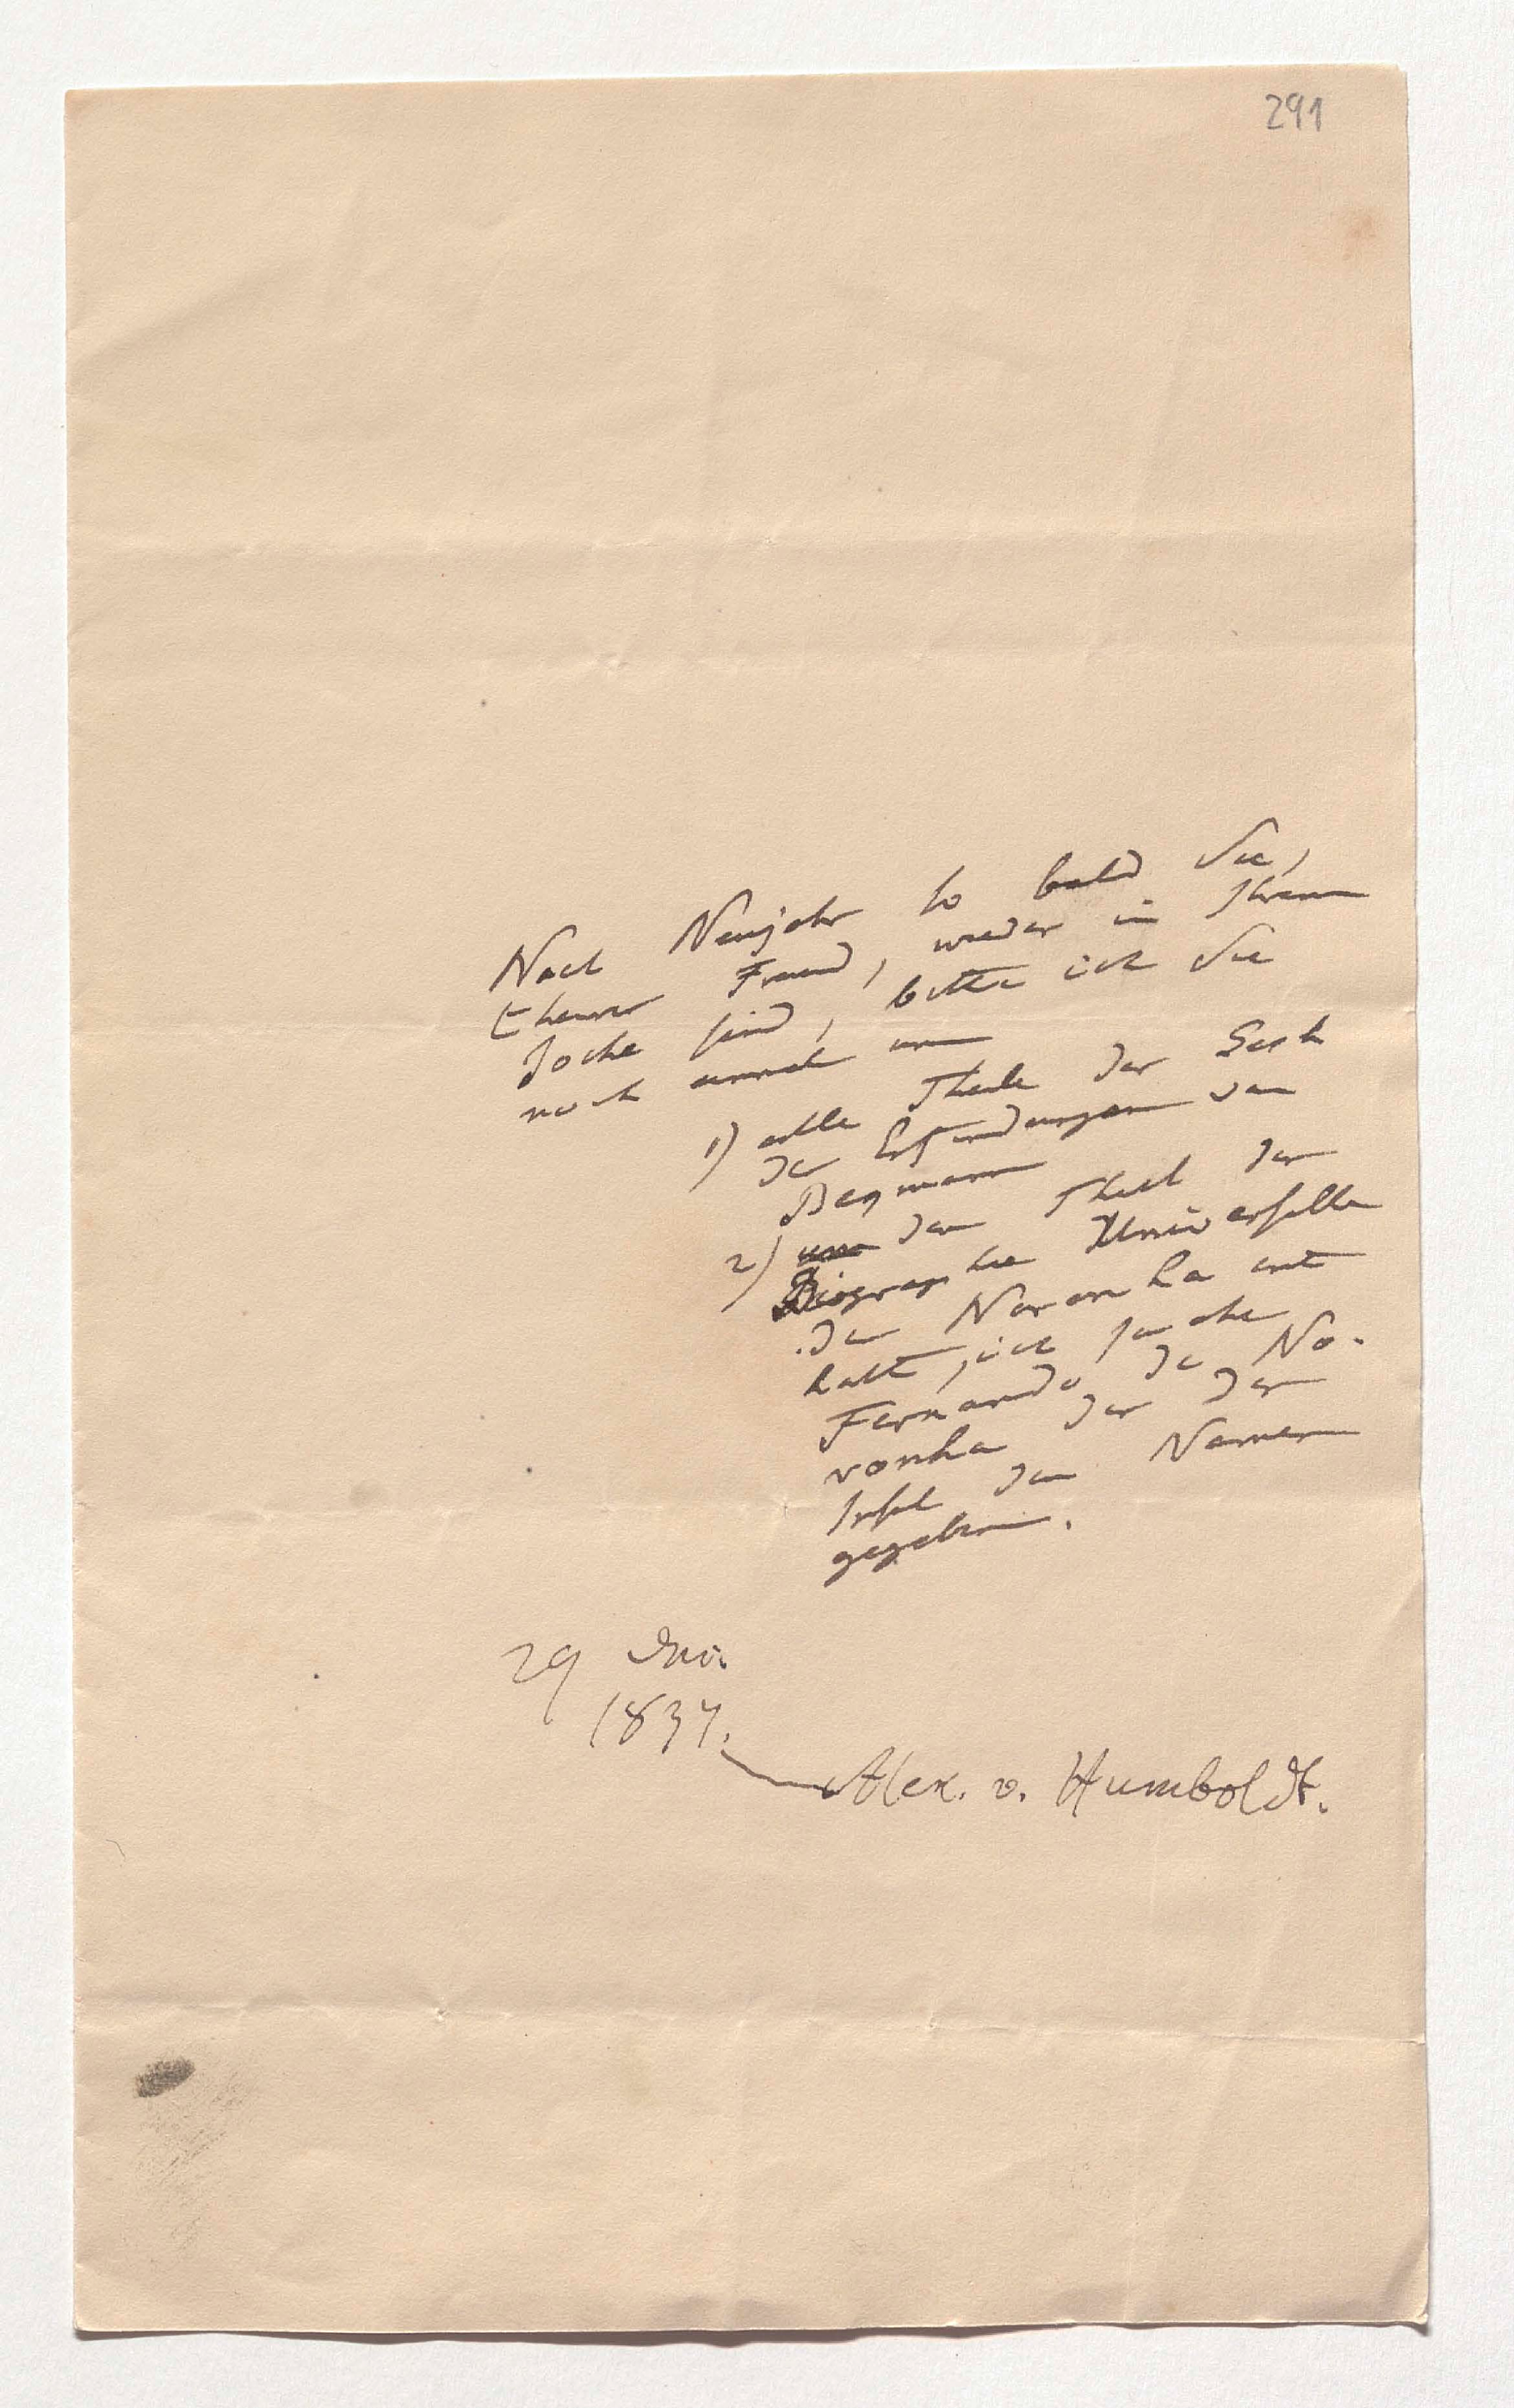 291
Nach Neujahr so bald Sie,
theurer Freund, wieder in Ihrem
Joche sind, bitte ich Sie
noch einmal um
1) alle Theile der Gesch
der Erfindungen von
Begmann
2) um den Theil der
Biographie Universelle
der Noronha ent
hält, ich suche
Fernando de No-
ronha der der
Insel den Namen
gegeben.
29 Dec.
1837.
Alex. v. Humboldt.